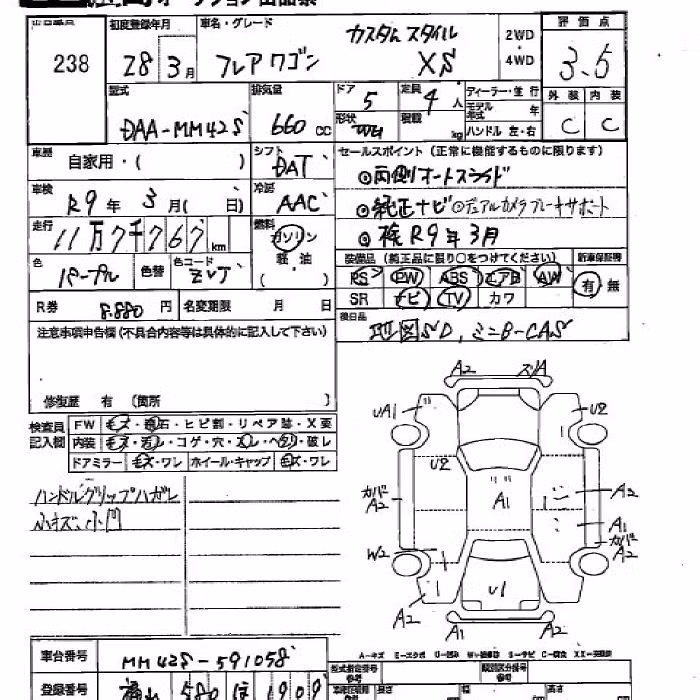 出品番号 初度登録年月 車名・グレード カスタムスタイル 2WD 評価点
238 28 3月 フレアワゴン XS ・4WD 3.5
型式 排気量 ドア 5 定員 4人 ディーラー・並行 外装 内装
DAA-MM42S 660cc 形状 積載 kg モデル年式 年 C C
ハンドル 左・右
車歴 自家用・( ) シフト DAT セールスポイント (正常に機能するものに限ります)
◎両側オートスライド
車検 R9年 3月( 日) 冷房 AAC ◎純正ナビ◎デュアルカメラブレーキサポート
走行 11万7千767km 燃料 ガソリン ◎検R9年3月
軽油 ( ) 装備品(純正品に限り○をつけてください) 新車保証書
色 パープル 色替 色コード ZVJ PS PW ABS エアB AW 有・無
R券 8.880円 名変期限 月 日 SR ナビ TV カワ
後日品 地図SD,ミニB-CAS
注意事項申告欄(不具合内容等は具体的に記入して下さい)
修復歴 有 (箇所 )
検査員記入欄 FW キズ・飛石・ヒビ割・リペア跡・X要
内装 キズ・汚レ・コゲ・穴・スレ・ヘタリ・破レ
ドアミラー キズ・ワレ ホイール・キャップ キズ・ワレ
ハンドルグリップハガレ
小キズ、小凹
A2 ズリA
UA1 U2
U2
カバー A2 A1 A2
A1
カバー A2
W2
A2 U1
A1 A2
車台番号 MM42S-591058
A-キズ E-エクボ U-凹み W-補修跡 S-サビ C-腐食 XX-交換済
型式指定番号 類別区分番号
登録番号 580 ほ 1909
長さ 幅 高さ